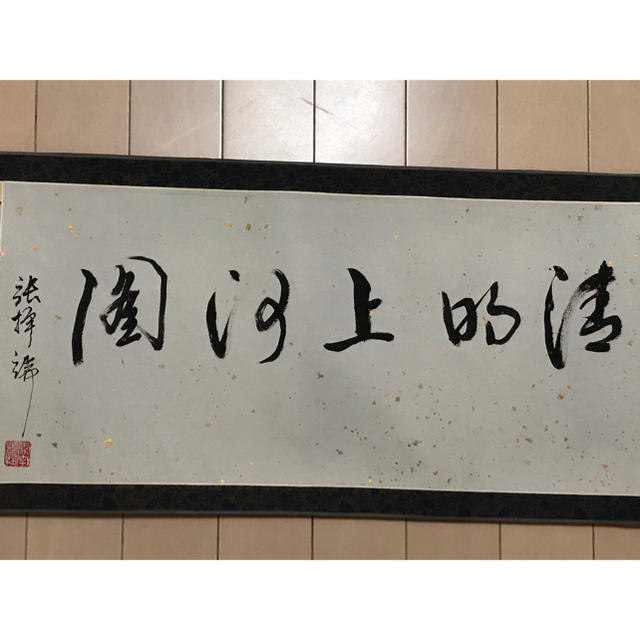 清明上河圖
張擇端